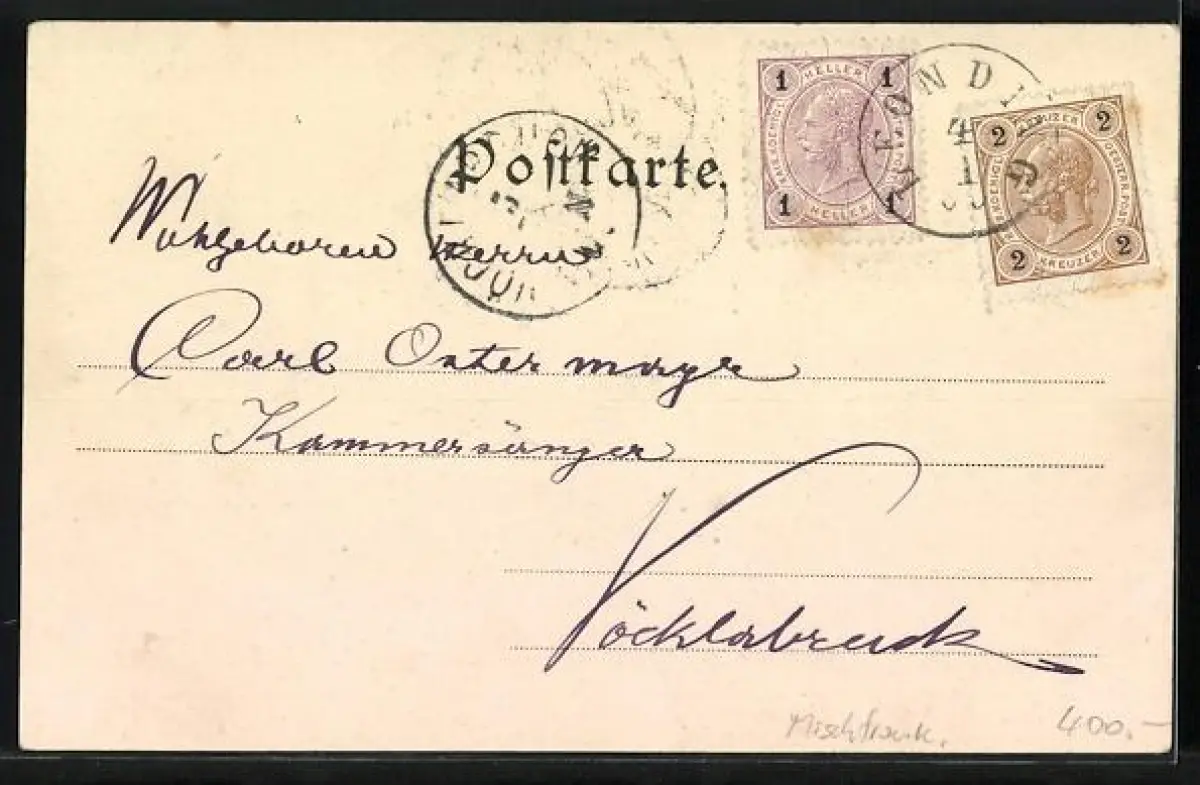 Postkarte.
1 HELLER 1
1 HELLER 1
2 KREUZER 2
2 KREUZER 2
MONDSEE
4
1
Wohlgeboren Herrn
Carl Ostermayr
Kammersänger
Vöcklabruck
Mischfrank. 400.-